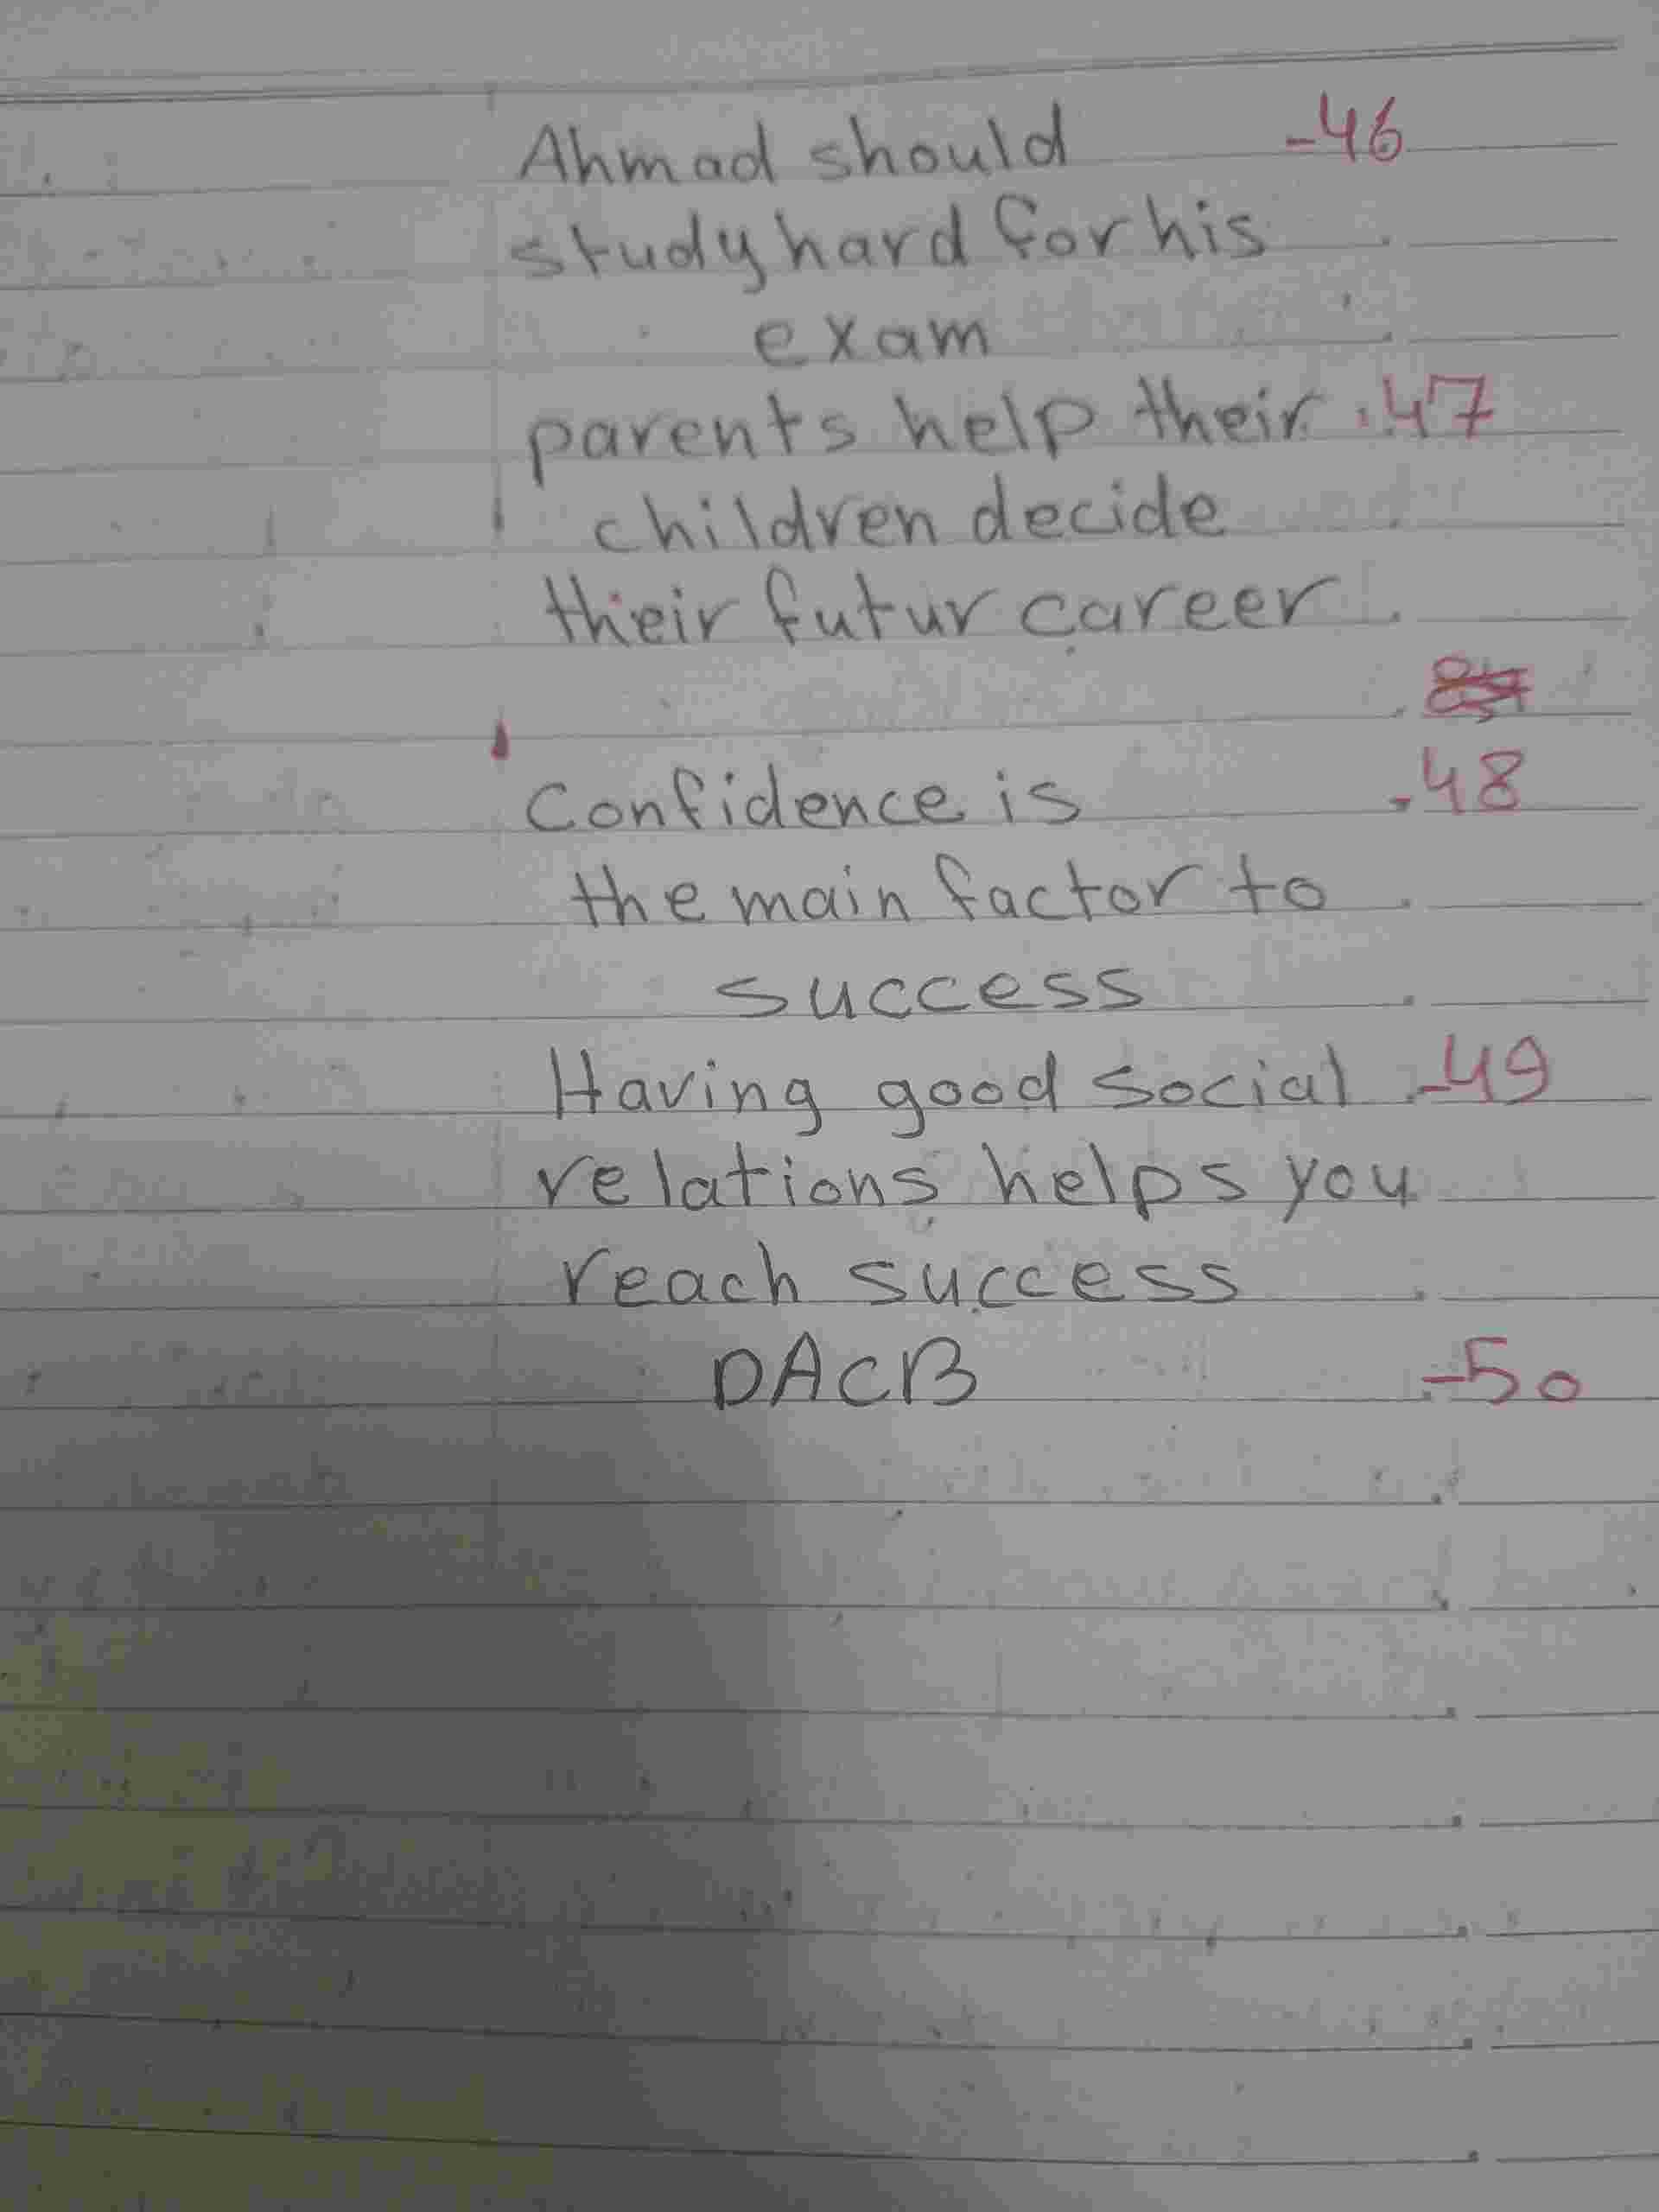 Ahmad should -46
study hard for his
exam
parents help their .47
children decide
their futur career
Confidence is .48
the main factor to
success
Having good social -49
relations helps you
reach success
DACB -50